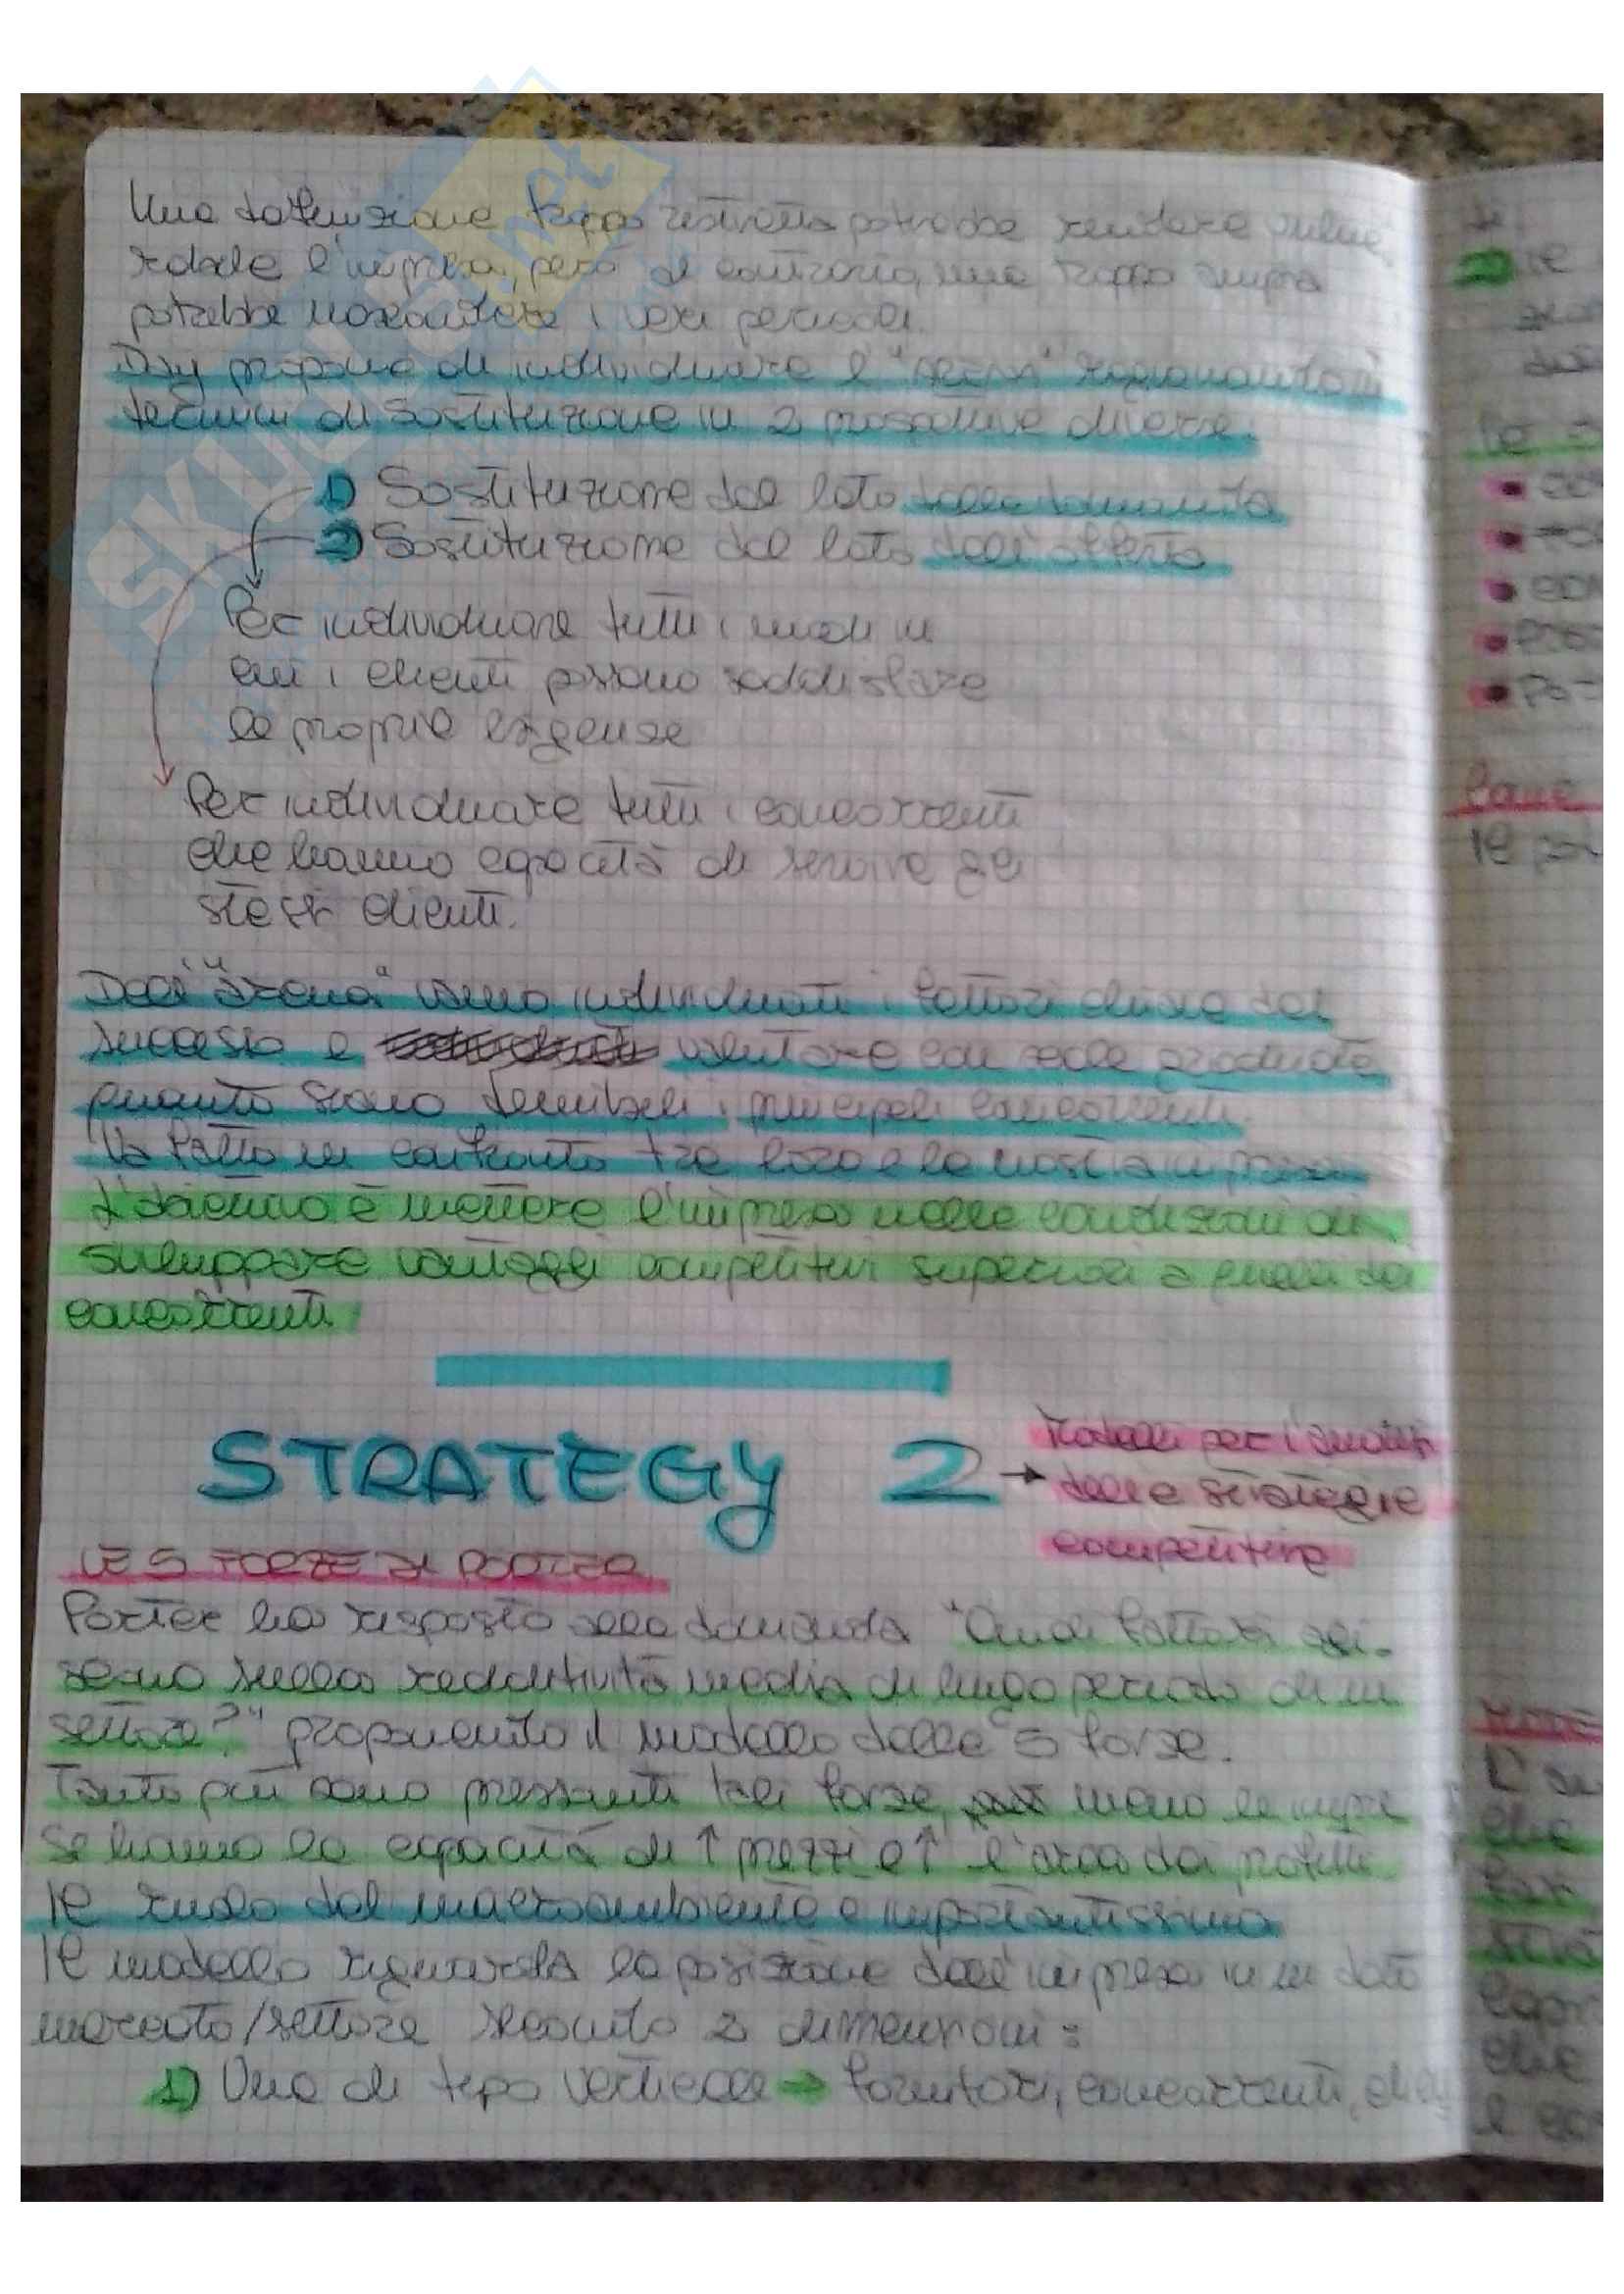 Una definizione troppo ristretta potrebbe rendere vulne-
rabile l'impresa, però al contrario, una troppo ampia
potrebbe nascondere i veri pericoli.
Day propone di individuare l'"arena" ragionando in
termini di sostituzione in 2 prospettive diverse:
1) Sostituzione dal lato della domanda
2) Sostituzione dal lato dell'offerta
Per individuare tutti i modi in
cui i clienti possono soddisfare
le proprie esigenze
Per individuare tutti i concorrenti
che hanno capacità di servire gli
stessi clienti.
Dell'"arena" vanno individuati i fattori chiave del
successo e valutare con scale graduate
quanto siano temibili i principali concorrenti.
Va fatto un confronto tra loro e la nostra impresa
L'obiettivo è mettere l'impresa nelle condizioni di
sviluppare vantaggi competitivi superiori a quelli dei
concorrenti.
STRATEGY 2 → Modelli per l'analisi
delle strategie
competitive
LE 5 FORZE DI PORTER
Porter ha risposto alla domanda "Quali fattori agi-
scono sulla redditività media di lungo periodo di un
settore?" proponendo il modello delle 5 forze.
Tanto più sono pressanti tali forze, meno le impre
se hanno la capacità di ↑ prezzi e ↑ l'area dei profitti.
Il ruolo del macroambiente è importantissimo
Il modello riguarda la posizione dell'impresa in un dato
mercato/settore secondo 2 dimensioni:
1) Una di tipo verticale → fornitori, concorrenti,
SKUOLA.net